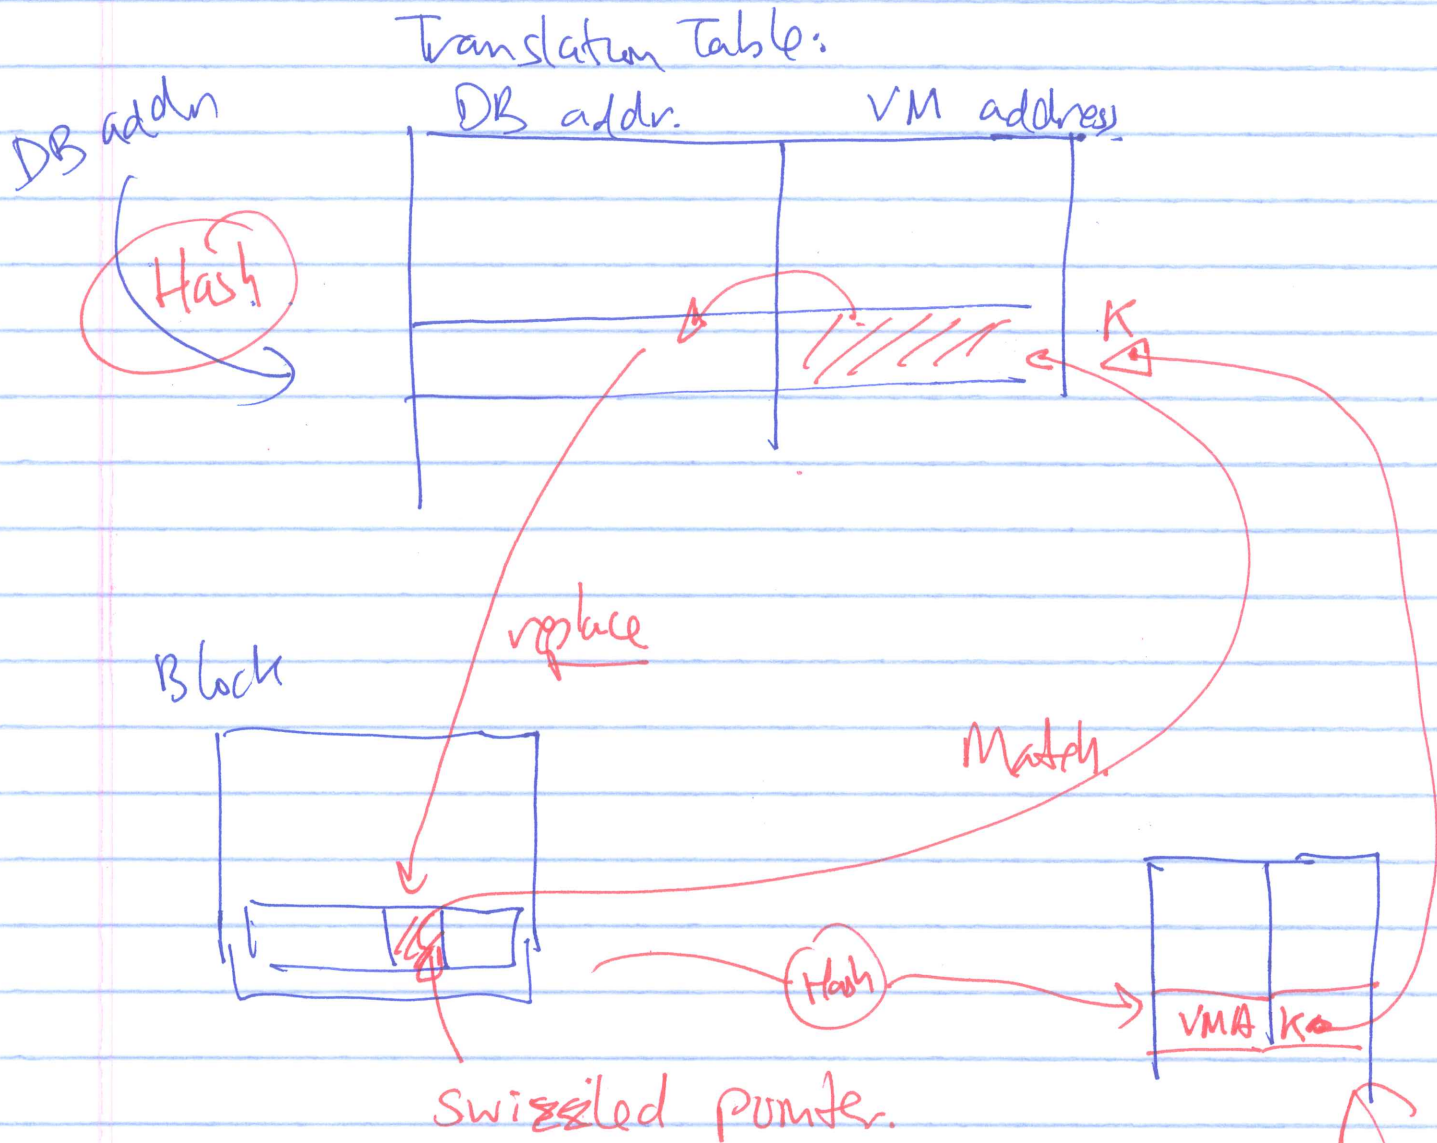 Translation Table:
DB addr
DB addr.
VM address
Hash
K
replace
Block
Match.
Hash
VMA
K
swizzled pointer.